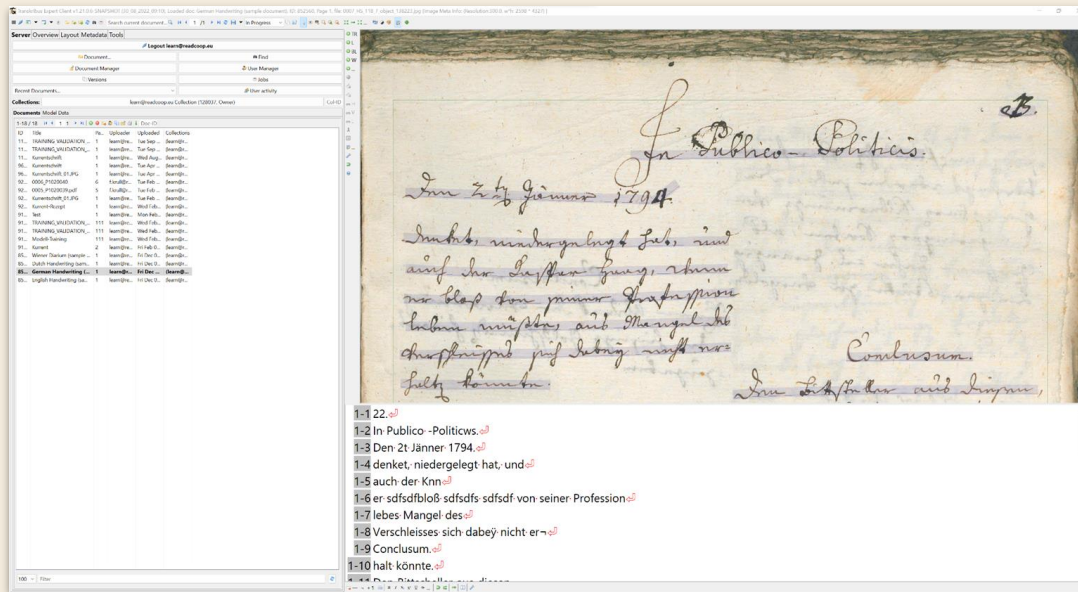 Search current document...
1 /1
In Progress
Server Overview Layout Metadata Tools
Logout learn@readcoop.eu
Document... Find
Document Manager User Manager
Versions Jobs
Recent Documents... User activity
Collections: learn@readcoop.eu Collection (128037, Owner)
Documents Model Data
1-18 / 18
ID Title Uploader Uploaded Collections
11... TRAINING_VALIDATION_... 1 learn@re... Tue Sep ... (learn@r...
11... TRAINING_VALIDATION_... 1 learn@re... Tue Sep ... (learn@r...
11... Kurrentschrift 1 learn@re... Wed Aug... (learn@r...
96... Kurrentschrift 1 learn@re... Tue Apr ... (learn@r...
92... Kurrentschrift_01.JPG 1 learn@re... Tue Apr ... (learn@r...
92... 0006_P1020040 6 Tue Feb ... (learn@r...
92... 5 Tue Feb ... (learn@r...
92... Kurrentschrift_01.JPG 1 learn@re... Tue Feb ... (learn@r...
92... 1 learn@re... Wed Feb... (learn@r...
91... Test 1 learn@re... Mon Feb... (learn@r...
91... TRAINING_VALIDATION_... 111 learn@re... Wed Feb... (learn@r...
91... TRAINING_VALIDATION_... 111 learn@re... Wed Feb... (learn@r...
91... Modell-Training 111 learn@re... Wed Feb... (learn@r...
91... Kurrent 2 learn@re... Fri Feb 0... (learn@r...
85... Wiener Diarium (sample ... learn@re... Fri Dec 0... (learn@r...
85... Dutch Handwriting (sam... learn@re... Fri Dec 0... (learn@r...
85... German Handwriting (... 1 learn@re... Fri Dec ... (learn@...
85... English Handwriting (sa... 1 learn@re... Fri Dec 0... (learn@r...
100 Filter
In Publico-Politicis.
Den 2tn Jänner 1794.
denket, niedergelegt hat, und
auch der Caspar Haag, wenn
er bloß von seiner Profession
leben müßte, aus Mangel des
Verschleisses sich dabeÿ nicht er=
haltn könnte.
Conclusum.
Dem Bittsteller aus diesen,
1-1 22.
1-2 In Publico -Politicws.
1-3 Den 2t Jänner 1794.
1-4 denket, niedergelegt hat, und
1-5 auch der Knn
1-6 er sdfsdfbloß sdfsdfs sdfsdf von seiner Profession
1-7 lebes Mangel des
1-8 Verschleisses sich dabeÿ nicht er¬
1-9 Conclusum.
1-10 halt könnte.